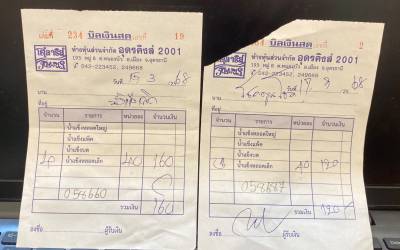 เล่มที่ 234 บิลเงินสด เลขที่ 19
ห้างหุ้นส่วนจำกัด อุดรคิงส์ 2001
195 หมู่ 6 ต.หนองบัว อ.เมือง จ.อุดรธานี
043-223452, 249369
วันที่ 15 3 68
นาม
ที่อยู่
จำนวน รายการ หน่วยละ จำนวนเงิน
น้ำแข็งหลอดใหญ่
น้ำแข็งแพ็ค
น้ำแข็งบด
4 น้ำแข็งหลอดเล็ก 40 160
058660
รวมเงิน 160
ลงชื่อ ผู้รับเงิน
234 บิลเงินสด เลขที่ 2
ห้างหุ้นส่วนจำกัด อุดรคิงส์ 2001
195 หมู่ 6 ต.หนองบัว อ.เมือง จ.อุดรธานี
043-223452, 249369
วันที่ 3 68
นาม
ที่อยู่
จำนวน รายการ หน่วยละ จำนวนเงิน
น้ำแข็งหลอดใหญ่
น้ำแข็งแพ็ค
น้ำแข็งบด
น้ำแข็งหลอดเล็ก 40 120
058687
รวมเงิน 120
ลงชื่อ ผู้รับเงิน